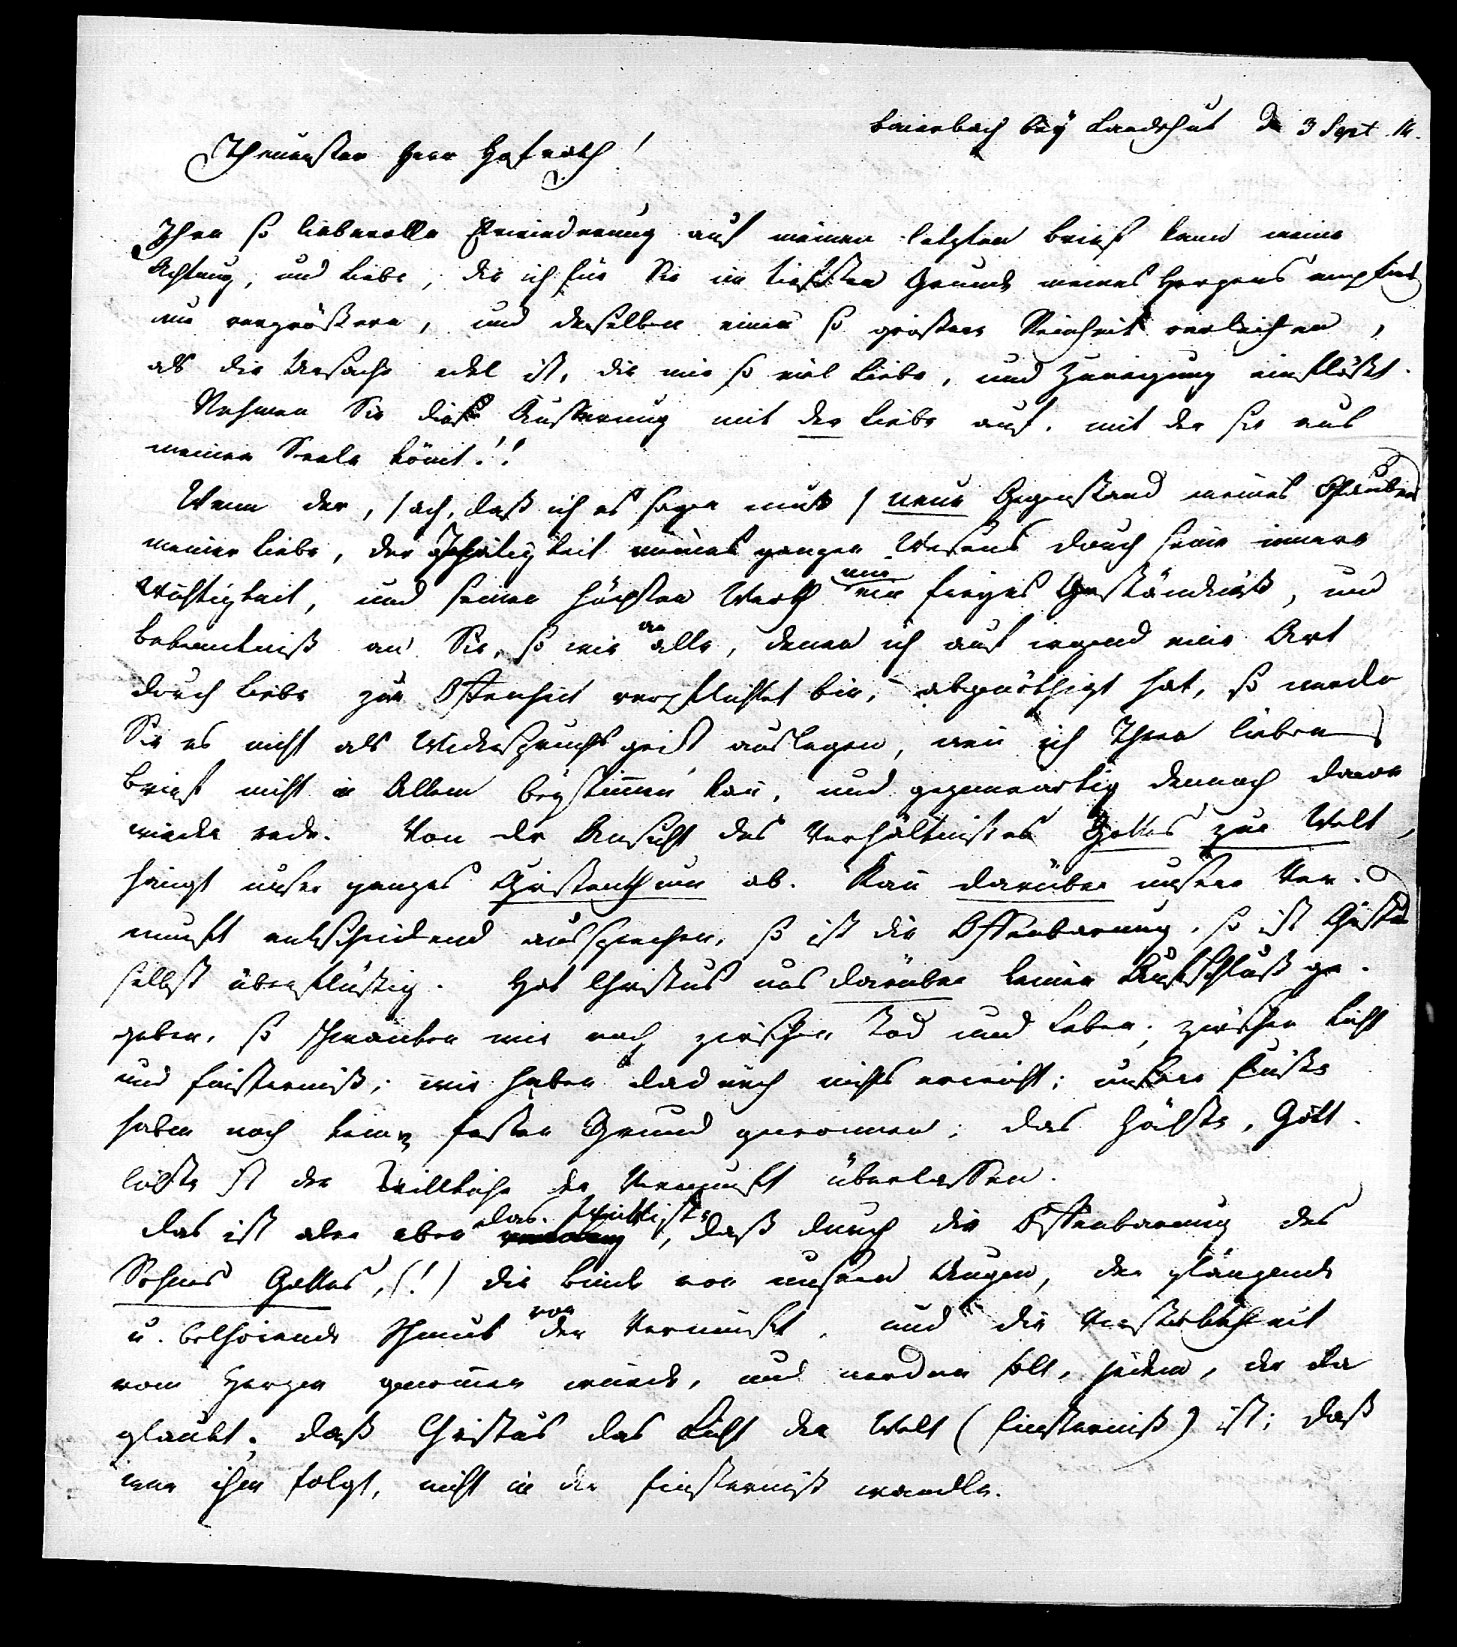 Baierbach bey Landshut d 3 Sept. 14.
Theuerster Herr Hofrath!
Ihre so liebevolle Erwiederung auf meinen letzten Brief kann meine
Achtung, und Liebe, die ich für Sie im tiefsten Grunde meines Herzens empfinde
nur vergrößern, und derselben eine so größere Reinheit verleihen,
als die Ursache edel ist, die mir so viel Liebe, und Zuneigung einflößt.
Nehmen Sie diese Äusserung mit der Liebe auf, mit der sie aus
meiner Seele kömt!!
Wenn der, /ach, daß ich es sagen muß / neue Gegenstand meines Glaubens
meiner Liebe, der Thätigkeit meines ganzen Wesens durch seine innere
Wichtigkeit, und seinen höchsten Werth mir ein freyes Geständniß, und
Bekenntniß an Sie, so wie an alle, denen ich auf irgend eine Art
durch Liebe zur Offenheit verpflichtet bin, abgenöthigt hat, so werden
Sie es nicht als Widerspruchsgeist auslegen, weñ ich Ihren lieben
Brief nicht in Allem beystim̃en kañ, und gegenwärtig dennoch davon
wieder rede. Von der Ansicht des Verhältnisses Gottes zur Welt,
hängt unser ganzes Christenthum ab. Kañ darüber unsere Ver-
nunft entscheidend aussprechen, so ist die Offenbarung, so ist Christus
selbst überflüßig. Hat Christus uns darüber keinen Aufschluß ge-
geben, so schwanken wir noch zwischen Tod und Leben, zwischen Licht
und Finsterniß; wir haben dadurch nichts erreicht; unsere Füsse
haben noch keinen festen Grund gewonnen; das Höchste, Gött-
lichste ist der Willkühr der Vernunft überlassen.
Das ist aber eben das , daß durch die Offenbarung des
Sohnes Gottes, (!) die Binde von unseren Augen, der glänzende
u. bethörende Schmuk von der Vernunft, und die Verstocktheit
vom Herzen genom̃en wurde, und werden soll, jedem, der da
glaubt, daß Christus das Licht der Welt (Finsterniß) ist; daß
wer ihm folgt, nicht in der Finsterniß wandle.